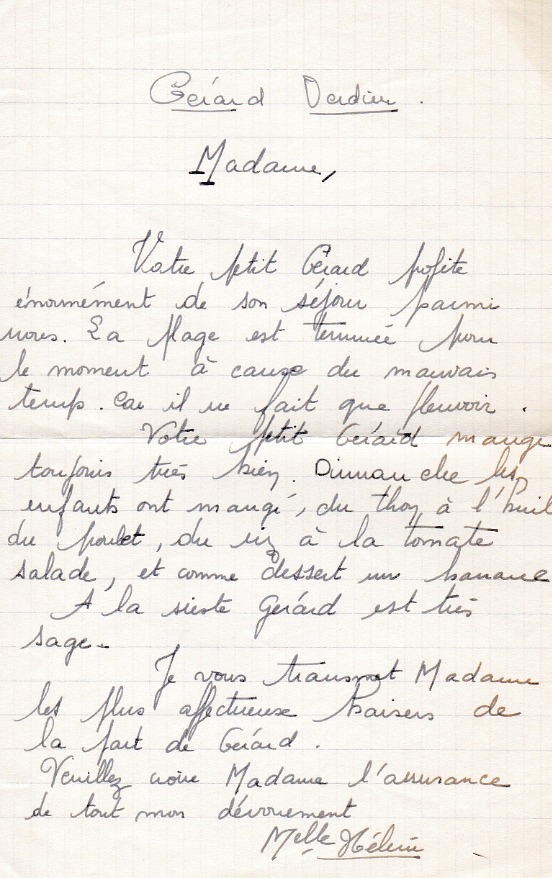 Gérard Verdier.
Madame,
Votre petit Gérard profite
énormément de son séjour parmi
nous. La plage est terminée pour
le moment à cause du mauvais
temp. Car il ne fait que pleuvoir.
Votre petit Gérard mange
toujours très bien. Dimanche les
enfants ont mangé, du thon à l'huil
du poulet, du riz à la tomate
salade, et comme dessert un banane
A la sieste Gérard est très
sage-
Je vous transmet Madame
les plus affectueuse baisers de
la part de Gérard.
Veuillez croire Madame l'assurance
de tout mon dévouement
Melle Hélène